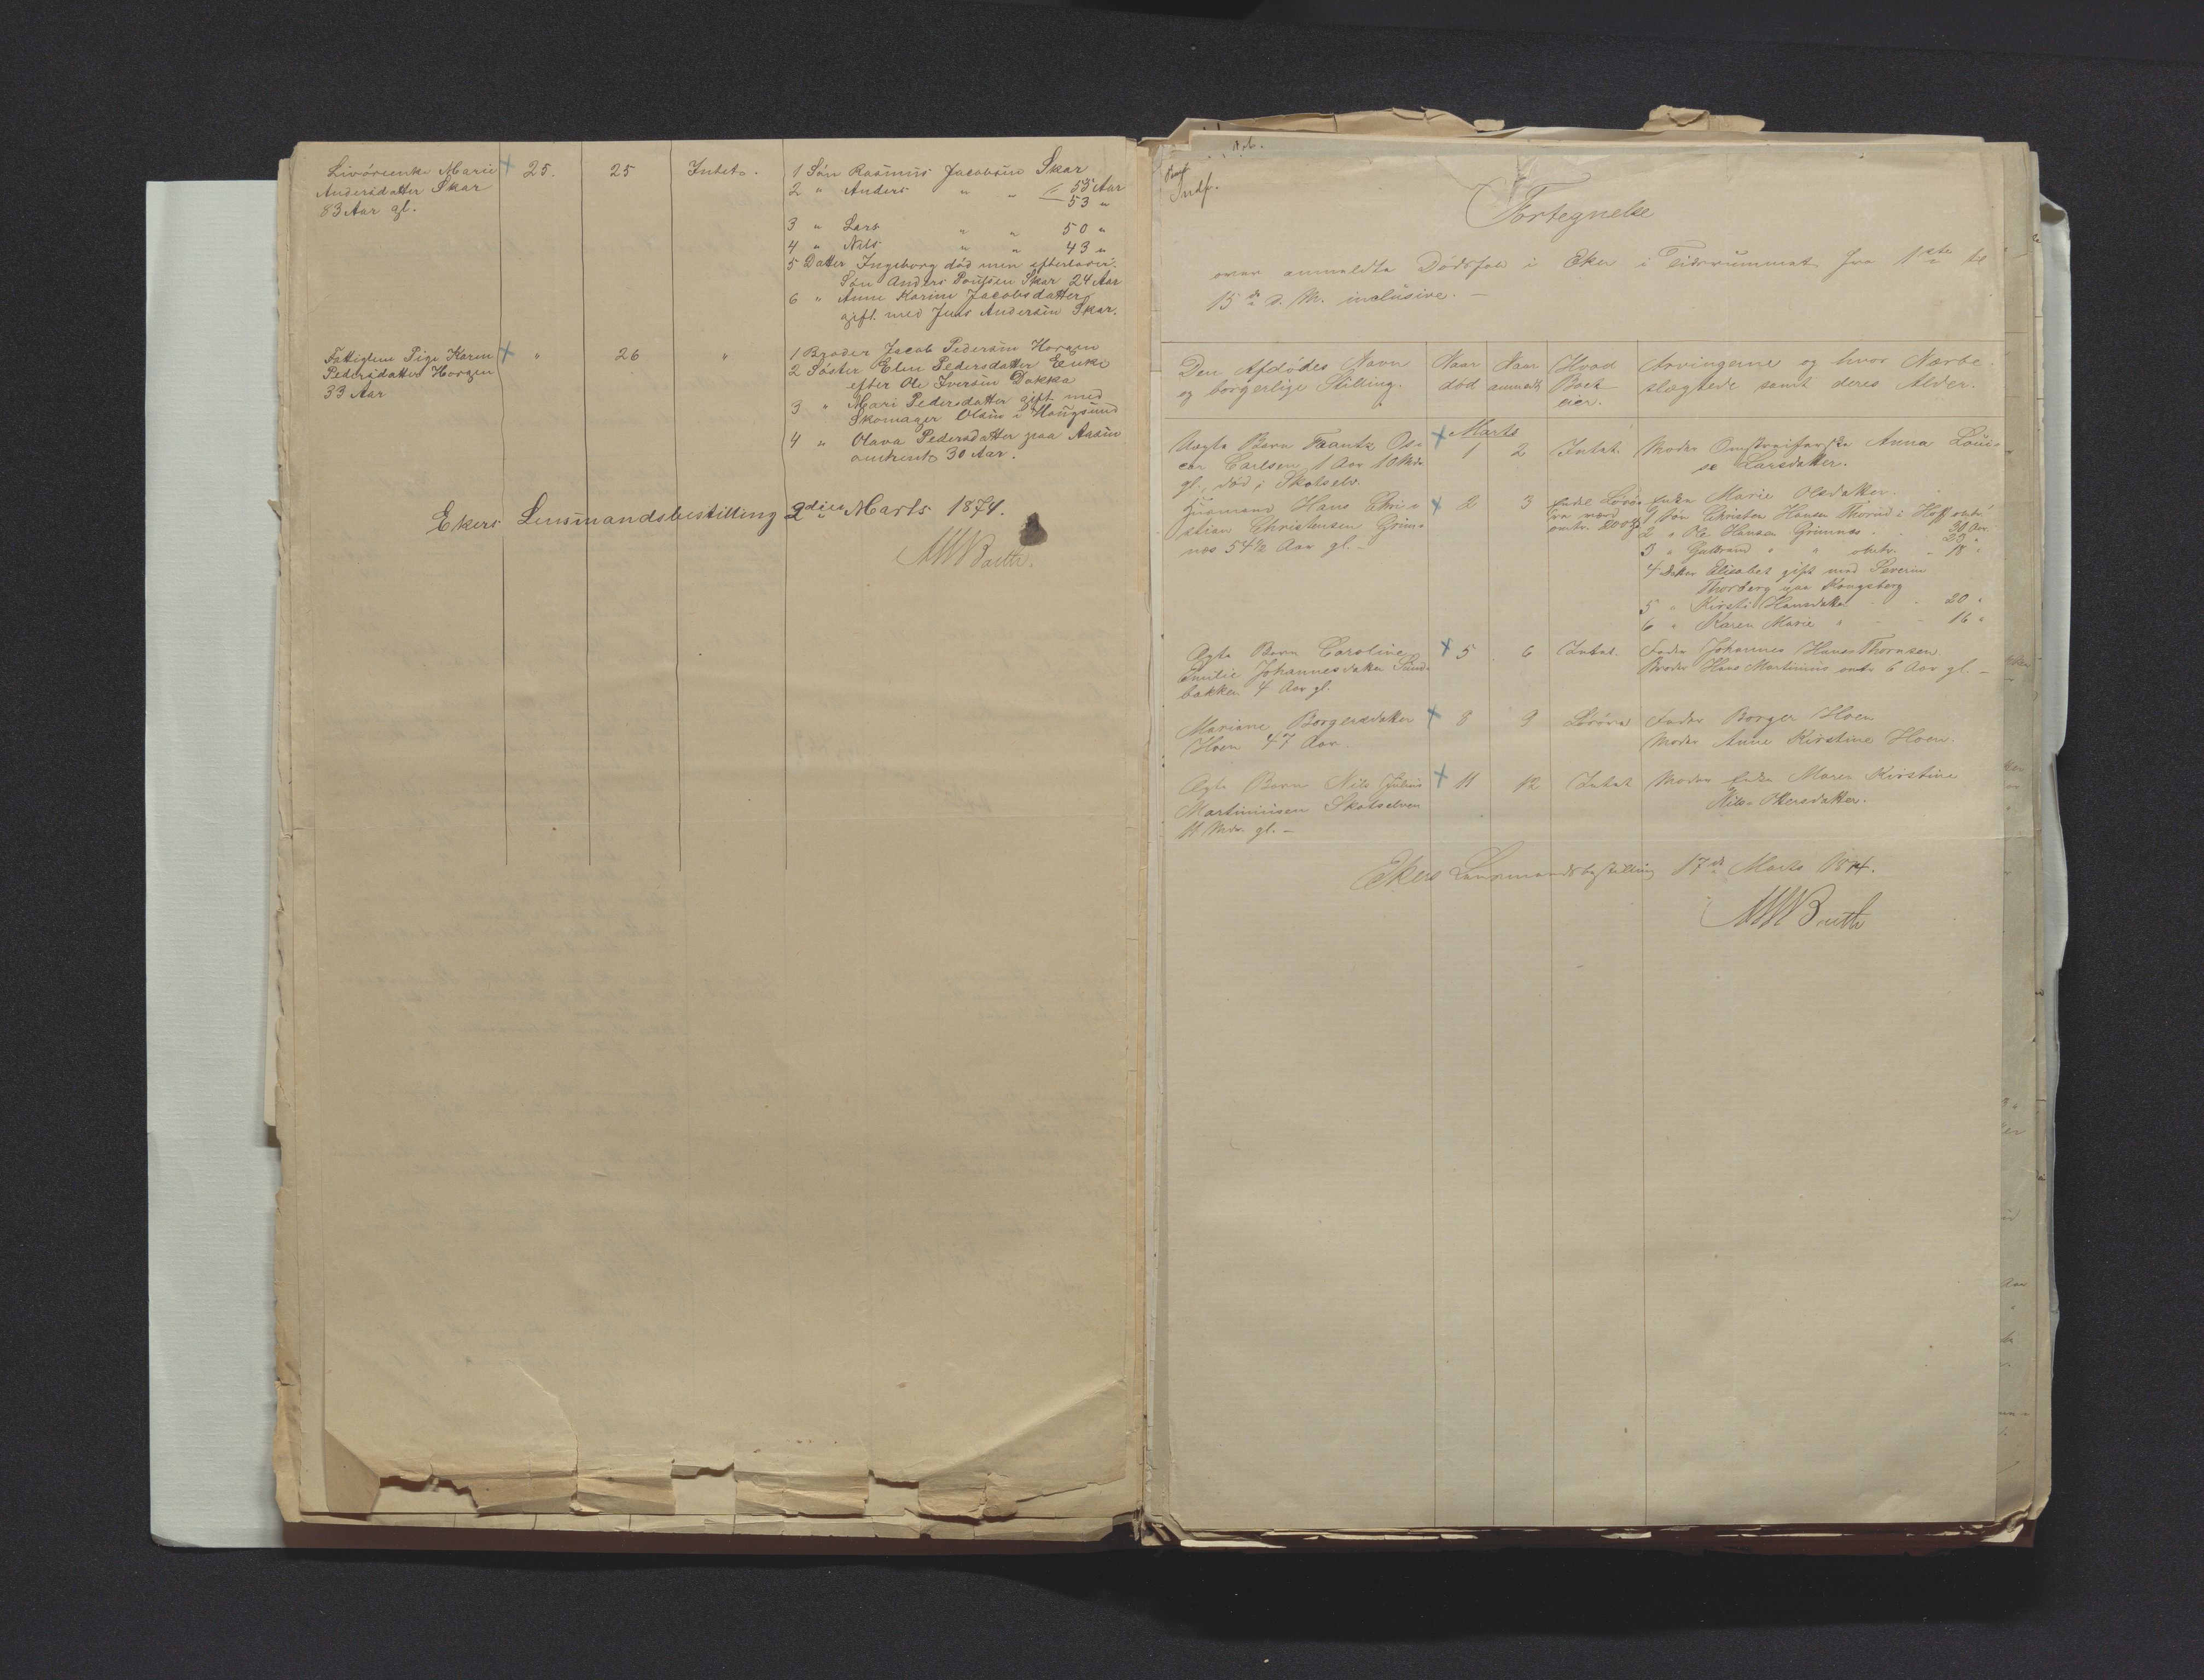 Livöreenke Marie + 25. 25 Intet. 1 Søn Rasmus Jacobsen Skar
Andersdatter Skar 2 " Anders " " 55 Aar
83 Aar gl. 53 "
3 " Lars " " 50 "
4 " Nils " " 43 "
5 Datter Ingeborg død men efterladt
Søn Anders Poulsen Skar 24 Aar
6 " Anne Karine Jacobsdatter
gift med Jens Andersen Skar.
Fattiglem Pige Karen + " 26 " 1 Broder Jacob Pedersen Horgen
Pedersdatter Horgen 2 Søster Elen Pedersdatter Enke
33 Aar efter Ole Iversen Dokka
3 " Mari Pedersdatter gift med
Skomager Olsen i Hougsund
4 " Olava Pedersdatter paa Aasen
omtrent 30 Aar.
Ekers Lensmandsbestilling 2den Marts 1874.
Indf.
Fortegnelse
over anmeldte Dødsfald i Eker i Tidsrummet fra 1ste til
15de d. M. inclusive. –
Den Afdødes Navn Naar Naar Hvad Arvingerne og hvor Nærbe-
og borgerlige Stilling. død anmeldt Boet slægtede samt deres Alder.
eier.
Marts
Uægte Barn Frantz Os- + 1 2 Intet. Moder Omstreiferske Anna Loui-
car Carlsen 1 Aar 10 Mdr. se Larsdatter.
gl., død i Skotselv.
Husmand Hans Chri- + 2 3 Endel Løsø- Enke Marie Olsdatter.
stian Christensen Grim- re værd 1 Søn Christen Hansen Thorud i Hoff omtr.
nes 54½ Aar gl. – omtr. 200 30 Aar.
2 " Ole Hansen Grimnes 23 "
3 " Gulbrand " " omtr. 18 "
4 Datter Elisabet gift med Severin
Thorberg paa Kongsberg
5 " Kirsti Hansdatter 20 "
6 " Karen Marie " 16 "
Ægte Barn Caroline + 5 6 Intet. Fader Johannes Hansen
Emilie Johannesdatter Sand- Broder Hans Martinius omtr 6 Aar gl. –
bakken 4 Aar gl.
Mariane Borgersdatter + 8 9 Løsøre Fader Borger Hoen
Hoen 47 Aar. Moder Anne Kirstine Hoen.
Ægte Barn Nils Julius + 11 12 Intet Moder Enke Maren Kirstine
Martiniusen Skotselven
11 Mdr. gl. –
Ekers Lensmandsbestilling 17de Marts 1874.